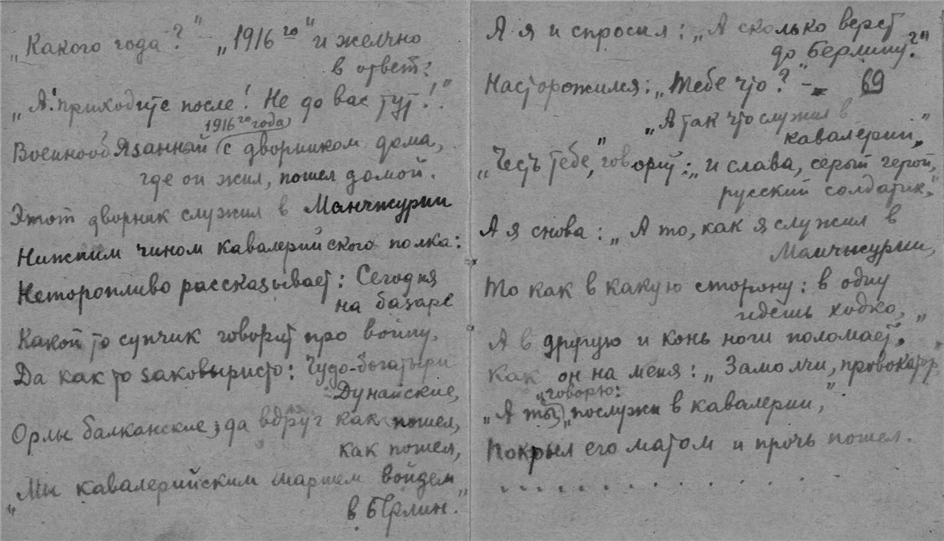 „Какого года?“ – „1916го“ и желчно
в ответ:
„А! приходите после! Не до вас тут!“
1916го года
Военнообязаннай с дворником дома,
где он жил, пошел домой.
Этот дворник служил в Манчжурии
Нижним чином кавалерийского полка:
Неторопливо рассказывает: Сегодня
на базаре
Какой то супчик говорит про войну,
Да как то заковыристо: Чудо-богатыри
Дунайские,
Орлы балканские, да вдруг как пошел,
как пошел,
„Мы кавалерийским маршем войдем
в Берлин.“
А я и спросил: „А сколько верст
до Берлину?“
Насторожился: „Тебе что? –
69
„А так что служил в
кавалерии“
„Честь тебе,“ говорит: „и слава, серый герой,
русский солдатик.“
А я снова: „А то, как я служил в
Манчжурии,
То как в какую сторону: в одну
идешь ходко,
А в другую и конь ноги поломает,“
Как он на меня: „Замолчи, провокатор“
говорю:
„А ты, „послужи в кавалерии,“
Покрыл его матом и прочь пошел.
. . . . . . . . . . . . . .